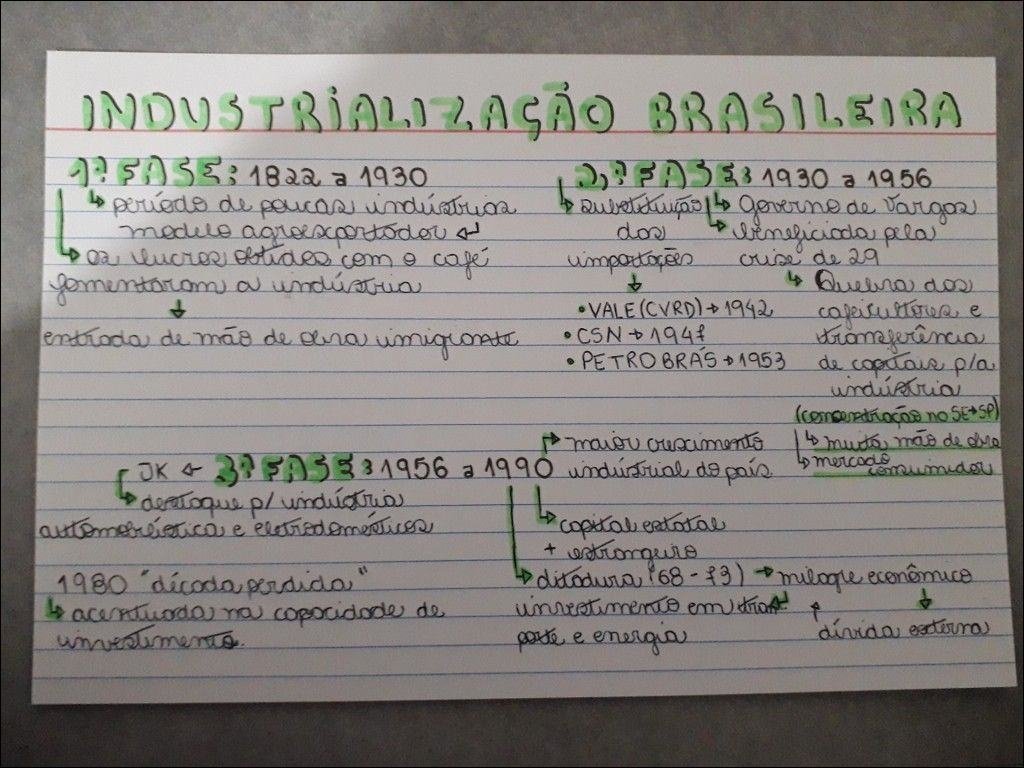 INDUSTRIALIZAÇÃO BRASILEIRA
1ª FASE: 1822 a 1930
↳ período de poucas indústrias
modelo agroexportador ↵
↳ os lucros obtidos com o café
fomentaram a indústria
↓
entrada de mão de obra imigrante
2ª FASE: 1930 a 1956
↳ substituição
das
importações
↓
• VALE (CVRD) → 1942
• CSN → 1947
• PETROBRÁS → 1953
↳ Governo de Vargas
↳ beneficiada pela
crise de 29
↳ Queima dos
cafeicultores e
transferência
de capitais p/a
indústria
(concentração no SE→SP)
↳ muita mão de obra
↳ mercado
consumidor
JK ← 3ª FASE: 1956 a 1990
↳ destaque p/ indústria
automobilística e eletrodomésticos
→ maior crescimento
industrial do país
↳ capital estatal
+ estrangeiro
↳ ditadura (68 - 73) → milagre econômico
investimento em trans
porte e energia
↓
↑ dívida externa
1980 "década perdida"
↳ acentuada na capacidade de
investimento.